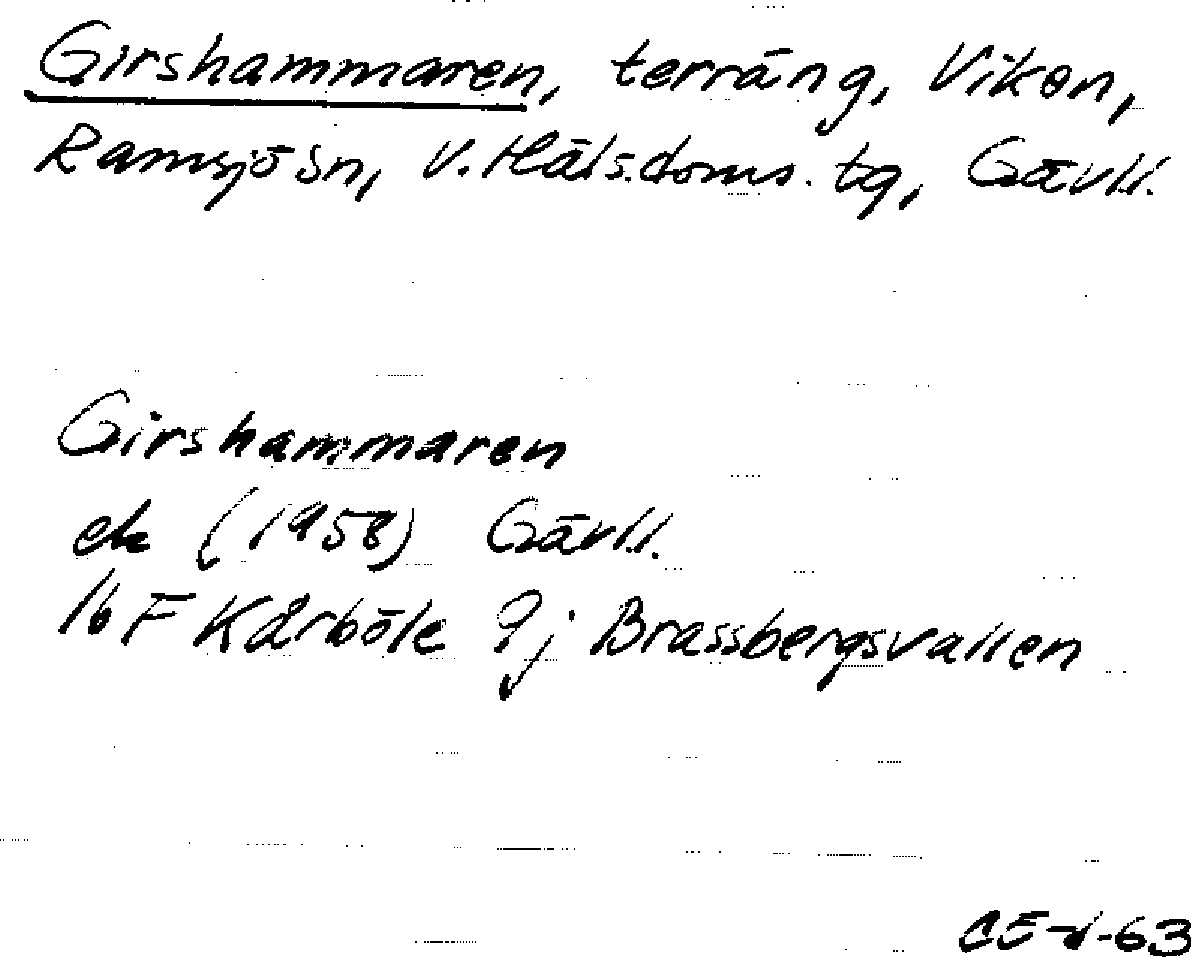 Girshammaren, terräng, Viken,
Ramsjö sn, V. Häls. doms. tg, Gävl.l.
Girshammaren
ek (1958) Gävl.l.
16 F Kårböle 9j Brassbergsvallen
63